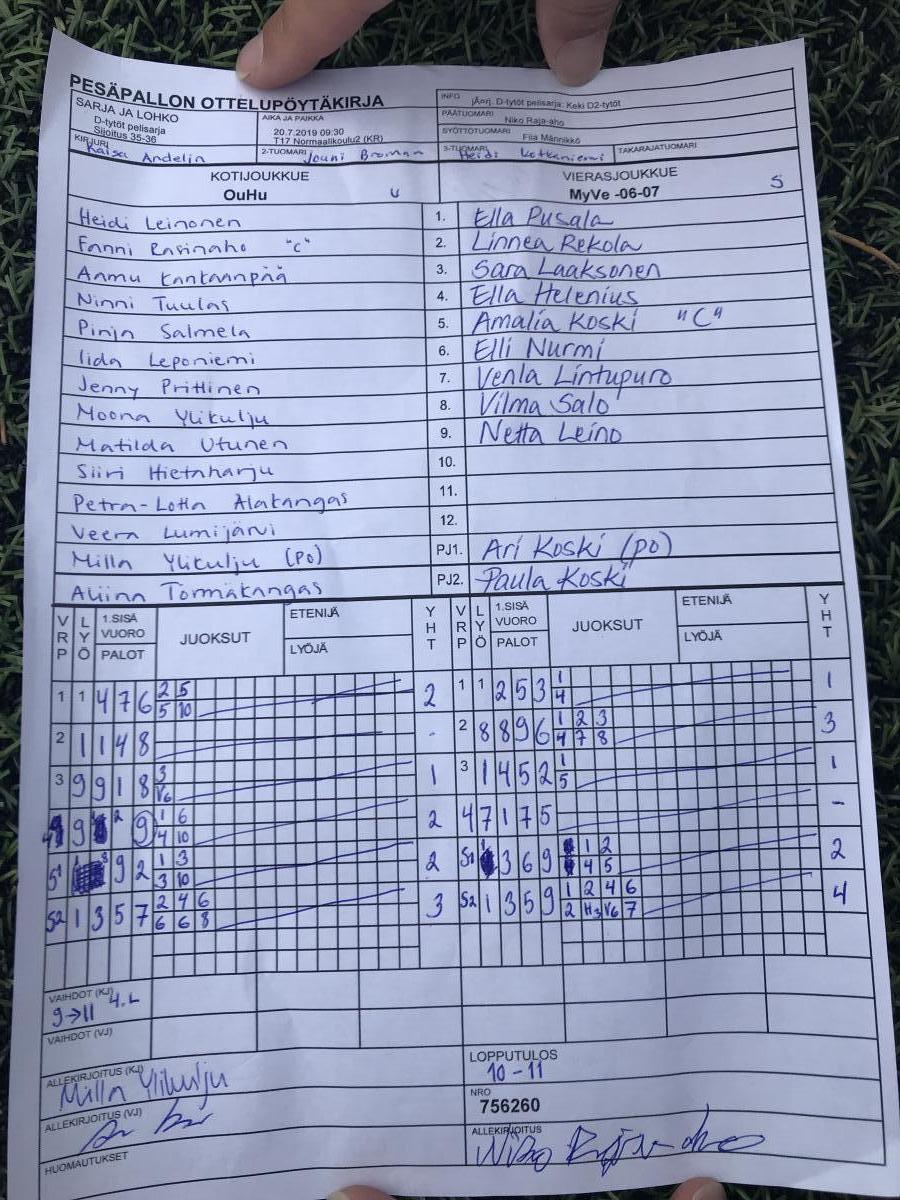 PESÄPALLON OTTELUPÖYTÄKIRJA
SARJA JA LOHKO
D-tytöt pelisarja
Sijoitus 35-36
AIKA JA PAIKKA
20.7.2019 09:30
T17 Normaalikoulu2 (KR)
INFO
jÄrrj. D-tytöt pelisarja: Keki D2-tytöt
PÄÄTUOMARI
Niko Raja-aho
SYÖTTÖTUOMARI Fiia Männikkö
KIRJURI Kaisa Andelin
2-TUOMARI Jouni Broman
3-TUOMARI Heidi
TAKARAJATUOMARI
KOTIJOUKKUE
OuHu U
VIERASJOUKKUE
MyVe -06-07 S
Heidi Leinonen 1. Ella Pusala
Fanni Rasinaho "C" 2. Linnea Rekola
Aamu Kankaanpää 3. Sara Laaksonen
Ninni Tuulas 4. Ella Helenius
Pinja Salmela 5. Amalia Koski "C"
Iida Leponiemi 6. Elli Nurmi
Jenny Prittinen 7. Venla Lintupuro
Moona Ylikulju 8. Vilma Salo
Matilda Utunen 9. Netta Leino
Siiri Hietaharju 10.
Petra-Lotta Alakangas 11.
Veera Lumijärvi 12.
Milla Ylikulju (PO) PJ1. Ari Koski (PO)
Aliina Törmäkangas PJ2. Paula Koski
VRP LYÖ 1.SISÄ VUORO PALOT JUOKSUT ETENIJÄ LYÖJÄ YHT VRP LYÖ 1.SISÄ VUORO PALOT JUOKSUT ETENIJÄ LYÖJÄ YHT
1 1 4 7 6 2 5 2 1 1 2 5 3 1 1
5 10 4
2 1 1 4 8 - 2 8 8 9 6 1 2 3 3
4 7 8
3 9 9 1 8 3 1 3 1 4 5 2 1 1
V6 5
4 9 2 9 1 6 2 4 7 1 7 5 -
4 10
S1 9 2 1 3 2 S1 3 6 9 1 2 2
3 10 4 5
S2 1 3 5 7 2 4 6 3 S2 1 3 5 9 1 2 4 6 4
6 6 8 2 H3 V6 7
VAIHDOT (KJ)
9→11 4.L
VAIHDOT (VJ)
ALLEKIRJOITUS (KJ)
Milla Ylikulju
ALLEKIRJOITUS (VJ)
HUOMAUTUKSET
LOPPUTULOS
10-11
NRO
756260
ALLEKIRJOITUS
Niko Raja-aho